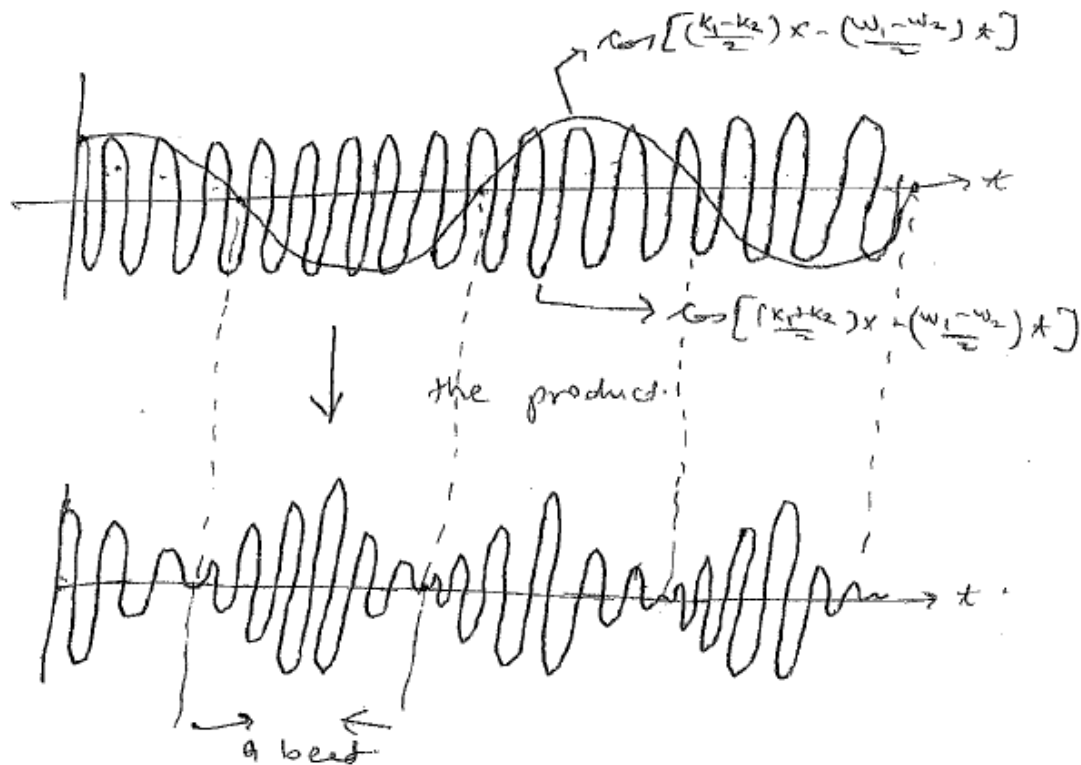 cos[(k₁-k₂)/2) x - (w₁-w₂)/2) t]
t
cos[(k₁+k₂)/2) x - (w₁-w₂)/2) t]
the product.
t.
a beat